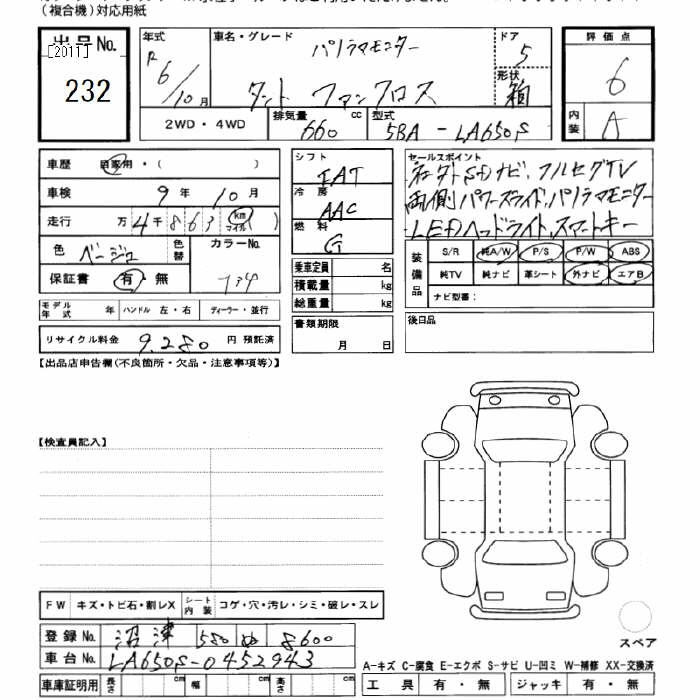 (複合機)対応用紙
出品No.
[2011]
232
年式
R6/10月
車名・グレード
パノラマモニター
タント ファンクロス
ドア
5
形状
箱
評価点
6
内装
A
2WD・4WD
排気量
660 cc
型式
5BA-LA650S
車歴 自家用・( )
車検 9年10月
走行 万4千863 km マイル ( )
色 ベージュ
色替
カラーNo.
保証書 有・無
T34
モデル年式 年 ハンドル 左・右 ディーラー・並行
リサイクル料金 9,280 円 預託済
シフト
IAT
冷房
AAC
燃料
G
乗車定員 名
積載量 kg
総重量 kg
書類期限
月 日
セールスポイント
SDナビ、フルセグTV
両側パワースライド、パノラマモニター
LEDヘッドライト、スマートキー
装備品
S/R 純A/W P/S P/W ABS
純TV 純ナビ 革シート 外ナビ エアB
ナビ型番:
後日品
【出品店申告欄(不良箇所・欠品・注意事項等)】
【検査員記入】
FW キズ・トビ石・割レX シート内装 コゲ・穴・汚レ・シミ・破レ・スレ
登録No. 沼津 580 ぬ 8600
車台No. LA650S-0452943
車庫証明用 長さ cm 幅 cm 高さ cm
スペア
A-キズ C-腐食 E-エクボ S-サビ U-凹ミ W-補修 XX-交換済
工具 有・無 ジャッキ 有・無